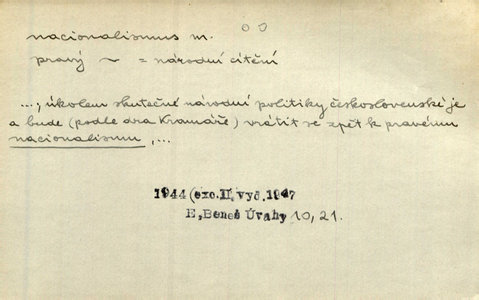 nacionalismus m.
pravý ~ = národní cítění
..., úkolem skutečné národní politiky československé je
a bude (podle dra Kramáře) vrátit se zpět k pravému
nacionalismu, ...
1944 (exc. II. vyd. 1947
E. Beneš Úvahy 10, 21.